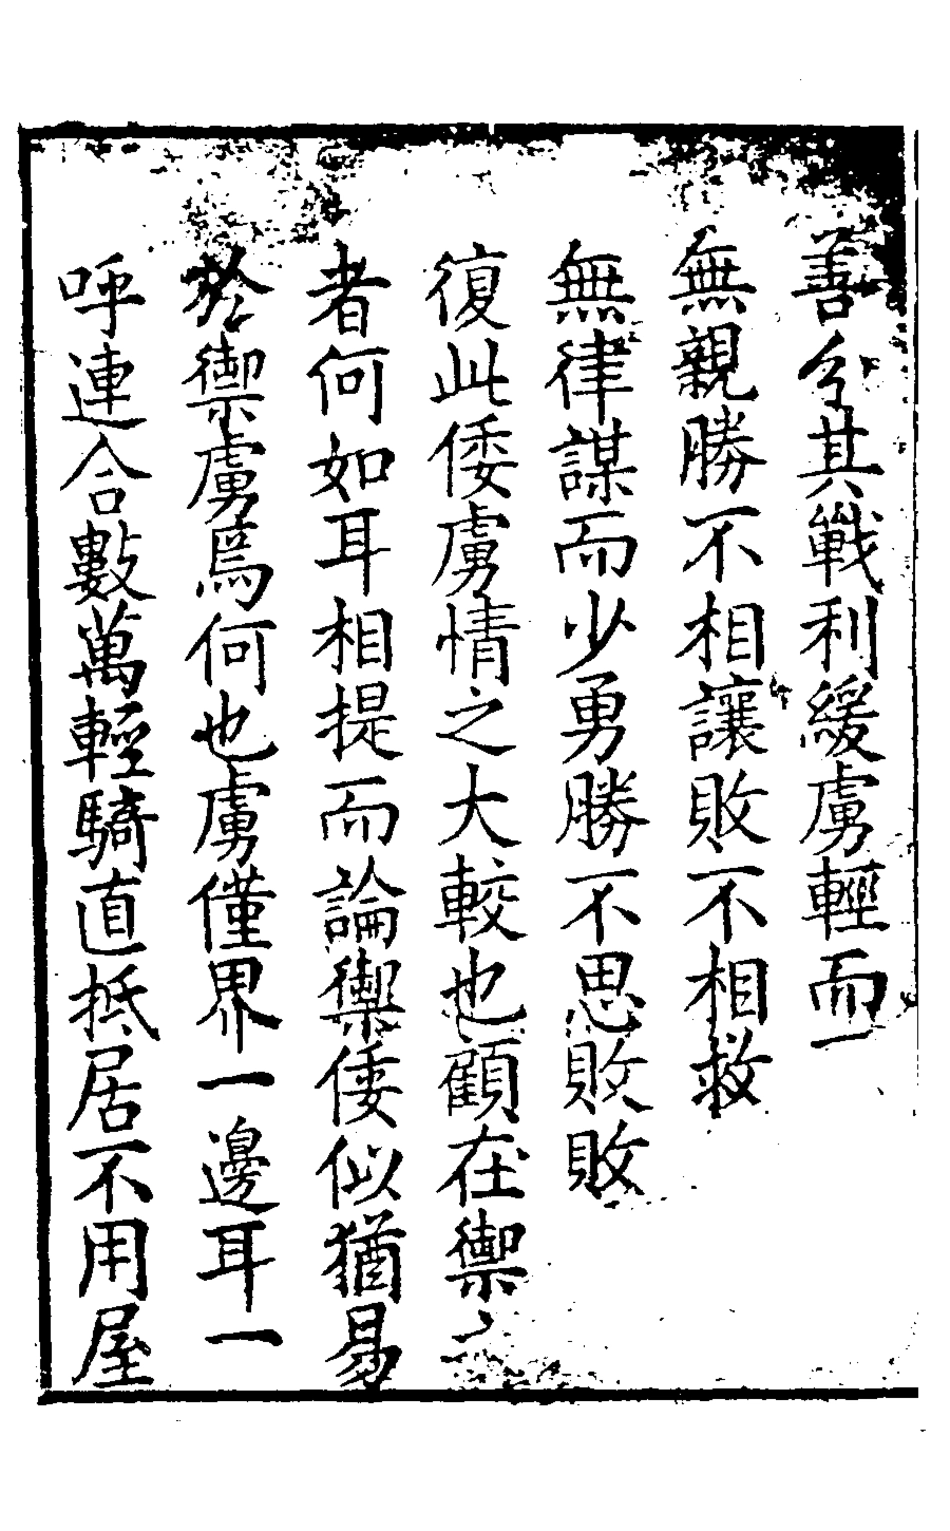 善分其戰利緩虜輕而
無親勝不相讓敗不相救
無律謀而少勇勝不思敗敗
復此倭虜情之大較也顧在禦之
者何如耳相提而論禦倭似猶易
於禦虜焉何也虜僅界一邊耳一
呼連合數萬輕騎直抵居不用屋